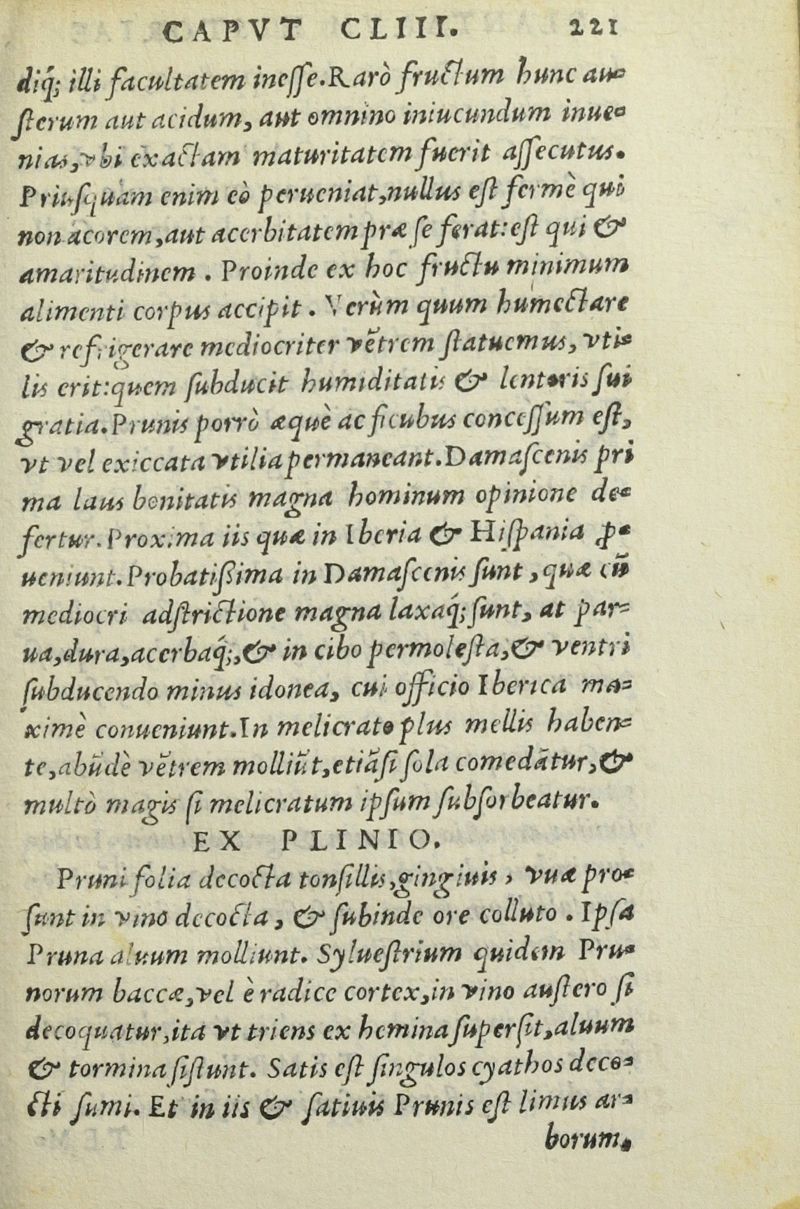 CAPVT CLIII. 221
diq́; illi facultatem ineſſe. Rarò fructum hunc au-
ſterum aut acidum, aut omnino iniucundum inue-
nias, vbi exactam maturitatem fuerit aſſecutus.
Priuſquam enim eò perueniat, nullus eſt fermè qui
non acorem, aut acerbitatem præ ſe ferat: eſt qui &
amaritudinem. Proinde ex hoc fructu minimum
alimenti corpus accipit. Verùm quum humectare
& refrigerare mediocriter vẽtrem ſtatuemus, vti-
lis erit: quem ſubducit humiditatis & lentoris ſui
gratia. Prunis porrò æquè ac ficubus conceſſum eſt,
vt vel exiccata vtilia permaneant. Damaſcenis pri
ma laus bonitatis magna hominum opinione de-
fertur. Proxima iis quæ in Iberia & Hiſpania ꝓ-
ueniunt. Probatiſsima in Damaſcenis ſunt, quæ cũ
mediocri adſtrictione magna laxaq́; ſunt, at par-
ua, dura, acerbaq́;, & in cibo permoleſta, & ventri
ſubducendo minus idonea, cui officio Iberica ma-
ximè conueniunt. In melicrato plus mellis haben-
te, abũdè vẽtrem molliũt, etiãſi ſola comedãtur, &
multò magis ſi melicratum ipſum ſubſorbeatur.
EX PLINIO.
Pruni folia decocta tonſillis, gingiuis, vuæ pro-
ſunt in vino decocta, & ſubinde ore colluto. Ipſa
Pruna aluum molliunt. Sylueſtrium quidem Pru-
norum baccæ, vel è radice cortex, in vino auſtero ſi
decoquatur, ita vt triens ex hemina ſuperſit, aluum
& tormina ſiſtunt. Satis eſt ſingulos cyathos deco-
cti ſumi. Et in iis & ſatiuis Prunis eſt limus ar-
borum,